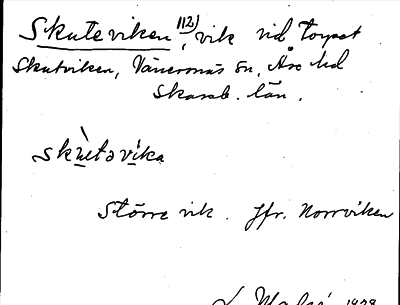 Skuteviken 112), vik vid torpet
Skutviken, Väneronäs sn, Åse hd
Skarab. län.
skùetəvika
Större vik. Jfr. Norrviken